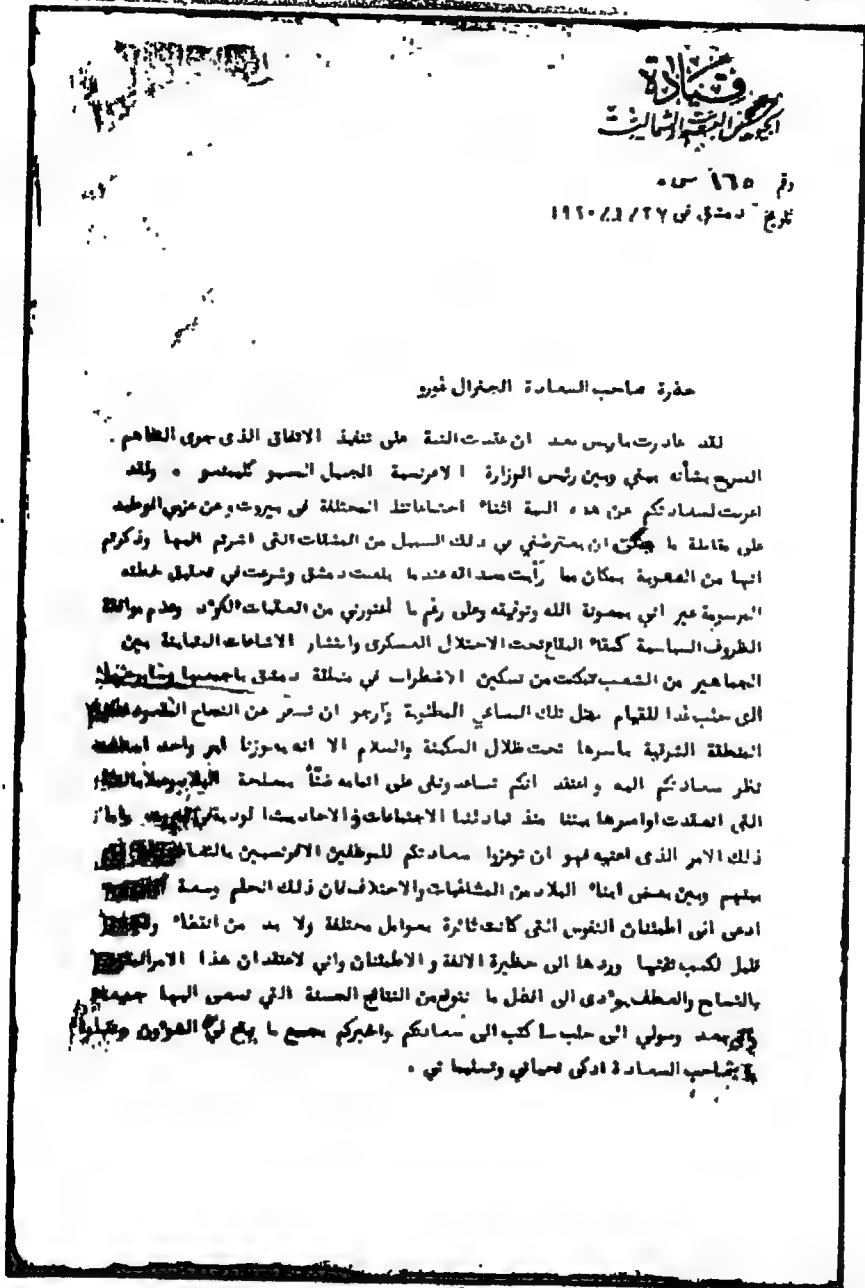 قيادة
الجيوش العربية الشمالية
رقم ١٦٥
تاريخ دمشق في ٢٧/١/١٩٢٠
حضرة صاحب السعادة الجنرال غورو
لقد غادرت باريس بعد ان عقدت النية على تنفيذ الاتفاق الذى جرى التفاهم
الصريح بشأنه بيني وبين رئيس الوزارة الافرنسية الجميل المسيو كليمنصو . ولقد
اعربت لسعادتكم عن هذه النية اثناء اجتماعاتنا المختلفة في بيروت وعن عزمي الوطيد
على مقابلة ما يمكن ان يعترضني في ذلك السبيل من المشقات التى اشرتم اليها وذكرتم
انها من الصعوبة بمكان مما رأيت صداقه عندما بلغت دمشق وشرعت في تحقيق خطته
المرسومة غير اني بمعونة الله وتوفيقه وعلى رغم ما أعتورني من العقبات الكؤد وعدم موافقة
الظروف السياسية كبقاء البقاع تحت الاحتلال العسكرى وانتشار الاشاعات المتباينة بين
الجماهير من الشعب تمكنت من تسكين الاضطراب في منطقة دمشق باجمعها
الى حلب غدا للقيام بمثل تلك المساعي المطلوبة وأرجو ان تسفر عن النجاح المقصود
المنطقة الشرقية باسرها تحت ظلال السكينة والسلام الا انه يعوزنا امر واحد
نظر سعادتكم اليه واعتقد انكم تساعدونني على اتمامه ضنًّا بمصلحة البلاد
التى انعقدت اواصرها بيننا منذ تبادلنا الاجتماعات والاحاديث الودية
ذلك الامر الذى اعنيه فهو ان توعزوا سعادتكم للموظفين الافرنسيين
بينهم وبين بعض ابناء البلاد من المشاغبات والاختلاف فان ذلك الحلم وسعة
ادعى الى اطمئنان النفوس التى كانت ثائرة بعوامل مختلفة ولا بد من انقضاء
قليل لكسب ثقتها وردها الى حظيرة الالفة والاطمئنان واني لاعتقد ان هذا الامر
بالتسامح والعطف يؤدى الى افضل ما نتوقع من النتائج الحسنة التي نسعى اليها جميعا
بعد وصولي الى حلب سأكتب الى سعادتكم واخبركم بجميع ما يقع
صاحب السعادة ازكى تحياتي وتسليماتي .